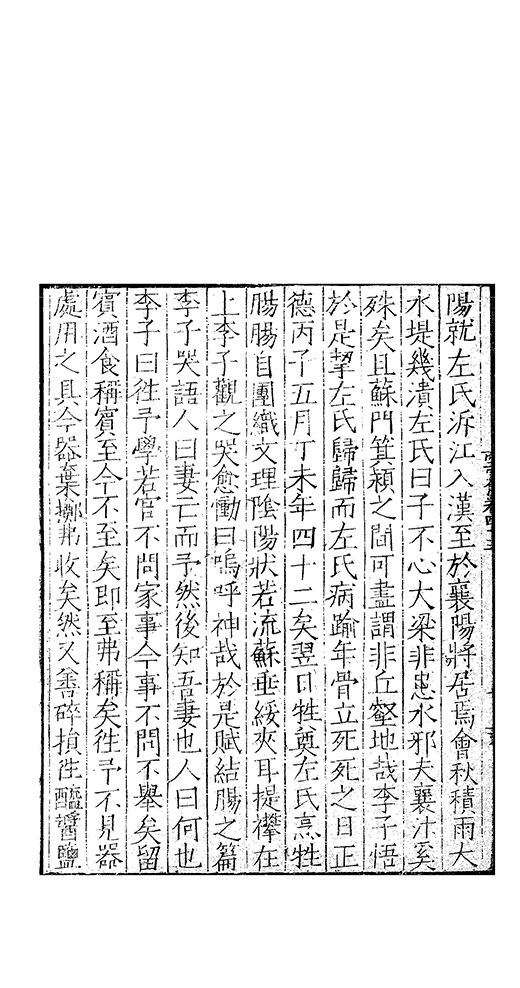 陽就左氏泝江入漢至於襄陽將居焉會秋積雨大
水堤幾潰左氏曰子不心大梁非患水邪夫襄汴奚
殊矣且蘇門箕潁之間可盡謂非丘壑地哉李子悟
於是挈左氏歸歸而左氏病踰年骨立死死之日正
德丙子五月丁未年四十二矣翌日牲奠左氏烹牲
腸腸自團織文理陰陽狀若流蘇垂綏夾耳提攀在
上李子觀之哭愈慟曰嗚呼神哉於是賦結腸之篇
李子哭語人曰妻亡而予然後知吾妻也人曰何也
李子曰徃予學若官不問家事今事不問不舉矣留
賓酒食稱賓至今不至矣即至弗稱矣徃予不見器
處用之具今器棄擲弗收矣然又善碎損徃醯醬鹽